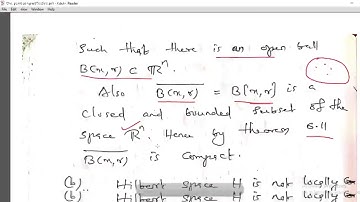 Such that there is an open ball
B(x,r) ⊂ ℝⁿ.
Also B(x,r) = B[x,r] is a
closed and bounded subset of the
space ℝⁿ. Hence by theorem 6.11
B(x,r) is compact.
(b).. Hilbert space H is not locally
(b). Hilbert space H is not locally